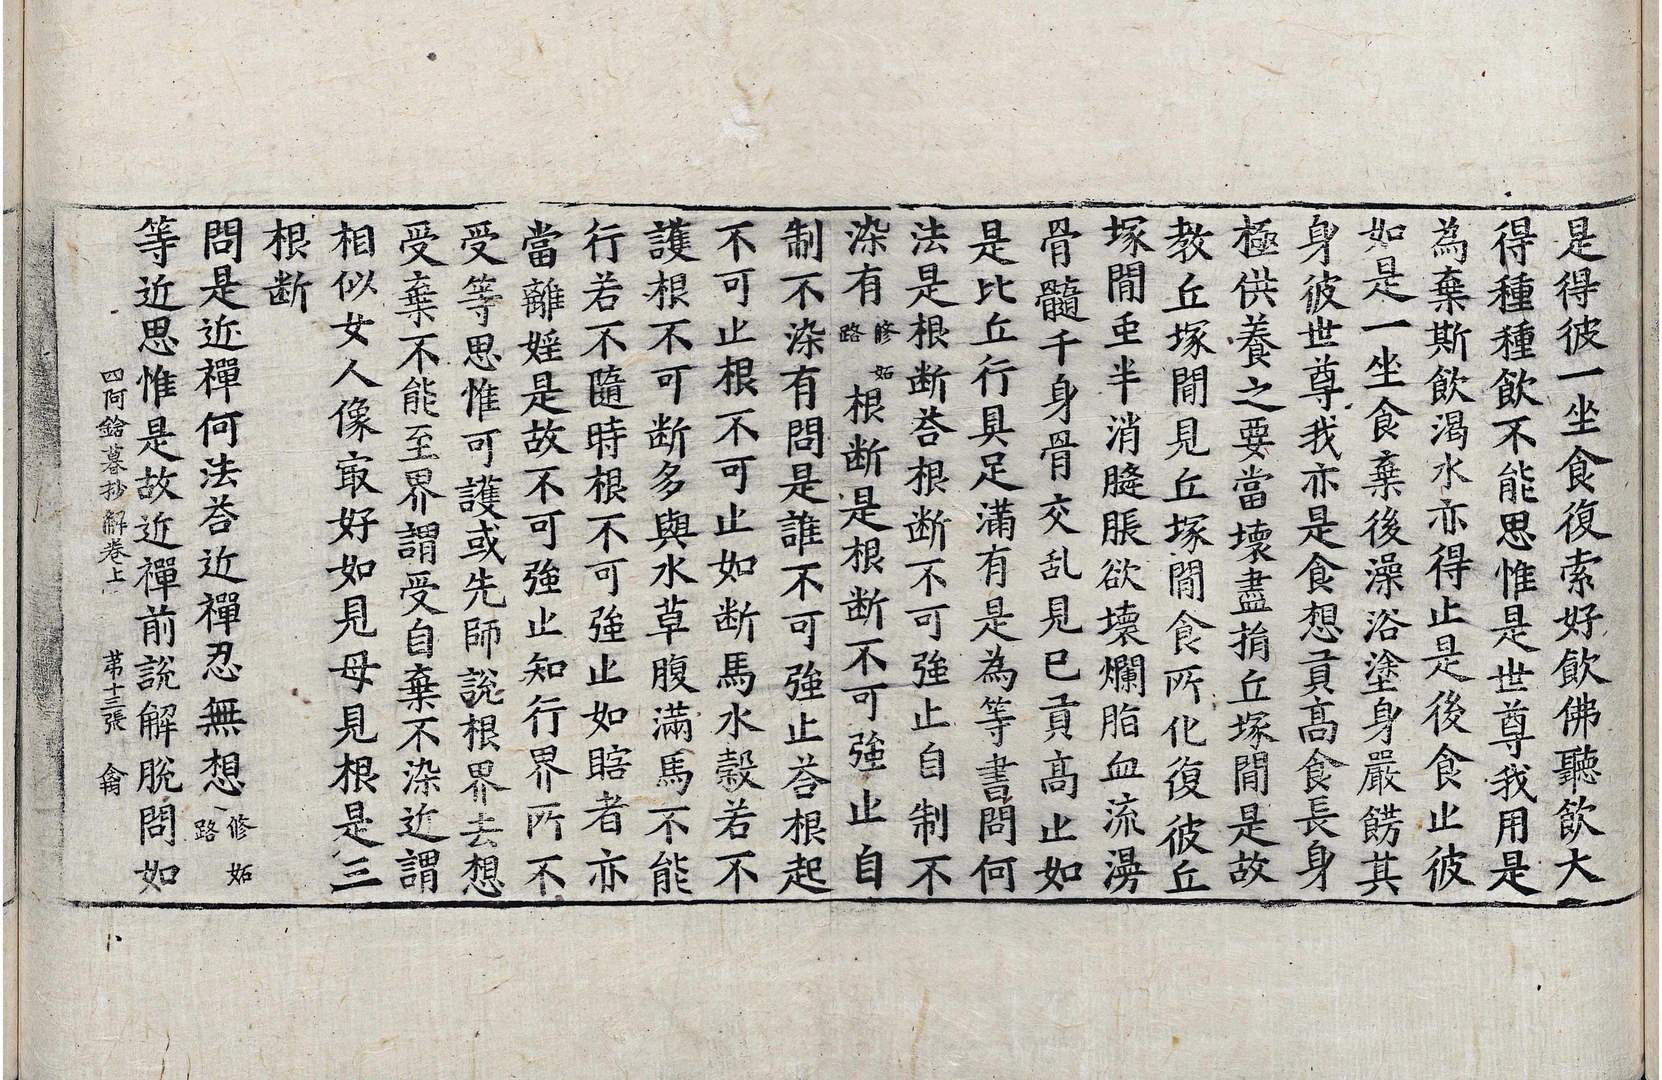 是得彼一坐食復索好飲佛聽飲大
得種種飲不能思惟是世尊我用是
為棄斯飲渴水亦得止是後食止彼
如是一坐食棄後澡浴塗身嚴餝其
身彼世尊我亦是食想貢高食長身
極供養之要當壞盡捐丘塚間是故
教丘塚間見丘塚間食所化復彼丘
塚間亞半消膖脹欲壞爛脂血流漫
骨髓千身骨交乱見已貢高止如
是比丘行具足滿有是為等書問何
法是根断荅根断不可強止自制不
染有修妬路根断是根断不可強止自
制不染有問是誰不可強止荅根起
不可止根不可止如断馬水穀若不
護根不可断多與水草腹滿馬不能
行若不隨時根不可強止如瞎者亦
當離婬是故不可強止知行界所不
受等思惟可護或先師説根界去想
受棄不能至界謂受自棄不染近謂
相似女人像㝡好如見母見根是三
根断
問是近禪何法荅近禪忍無想修妬路
等近思惟是故近禪前説解脫問如
四阿鋡暮抄解卷上 第十三張 翕